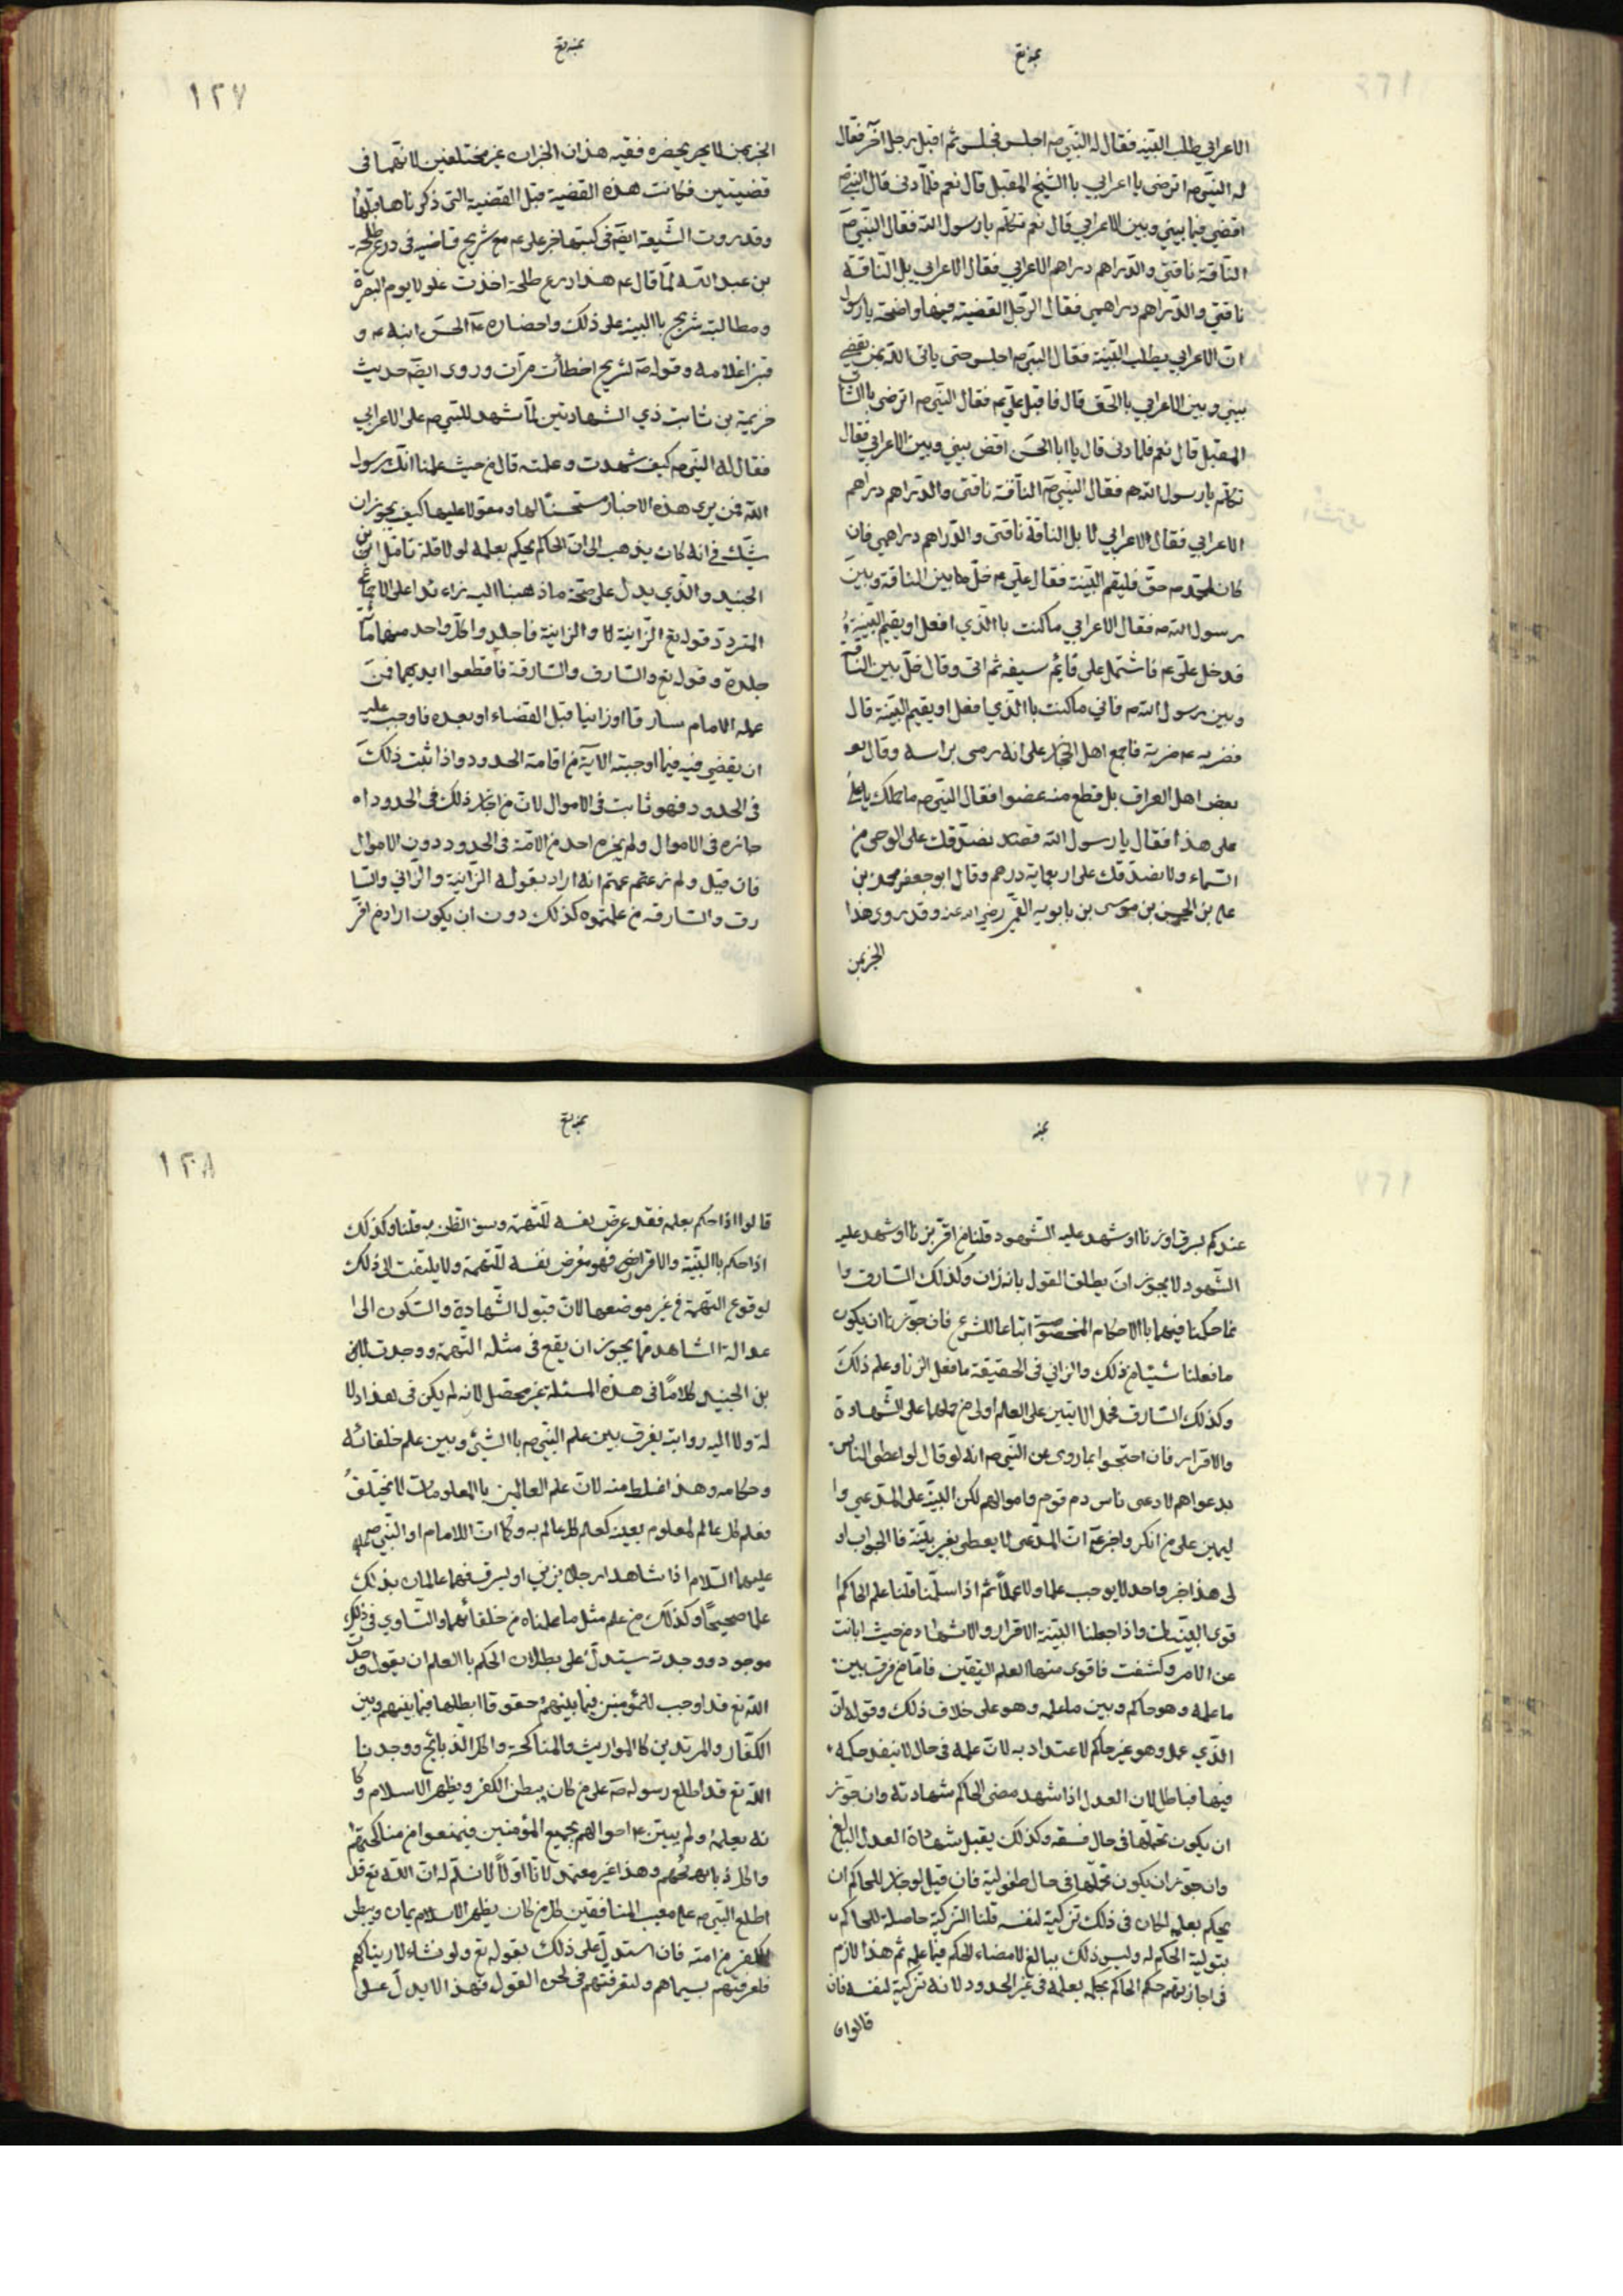 بمنه تع
الاعرابي يطلب البينه فقال له النبي ص اجلس فجلس ثم اقبل رجل آخر فقال
له النبي ص اترضى يا اعرابي باالشيخ المقبل قال نعم فلما دنى قال النبي ص
اقضي فيما بيني وبين الاعرابي قال نعم تكلم يا رسول الله فقال النبي ص
الناقة ناقتي والدراهم دراهم الاعرابي فقال الاعرابي بل الناقة
ناقتي والدراهم دراهمي فقال الرجل القضية فيها واضحة يا رسول
ان الاعرابي يطلب البينة فقال النبي ص اجلس حتى ياتى الله بمن يقضي
بيني وبين الاعرابي باالحق قال فاقبل علي ع م فقال النبي ص اترضى باالشاب
المقبل قال نعم فلما دنى قال يا ابا الحسن اقض بيني وبين الاعرابي فقال
تكلم يا رسول الله ص فقال النبي ص الناقة ناقتى والدراهم دراهم
الاعرابي فقال الاعرابي لا بل الناقة ناقتى والدراهم دراهمي فان
كان لمحمد ص حق فليقم البينة فقال علي ع م خل ما بين الناقة وبين
رسول الله ص فقال الاعرابي ماكنت باالذي افعل او يقيم البينة
فدخل علي ع م فاشتمل على قايم سيفه ثم اتى وقال خل بين الناقة
وبين رسول الله ص فاني ماكنت باالذي افعل او يقيم البينة قال
فضربه ع م ضربة فاجمع اهل الحجاز على انه رمى براسه وقال بعـ
بعض اهل العراق بل قطع منه عضوا فقال النبي ص ما حملك يا علي
على هذا فقال يا رسول الله نصدقك على الوحى من
السماء ولا نصدقك على اربعماية درهم وقال ابو جعفر محمد بن
علي بن الحسين بن موسى بن بابويه القمي رضي الله عنه وقد روى هذا
الخبر من
بمنه تع
١٢٧
الخبر من لا يحضره فقيه هذان الخبران غير مختلفين لانهما فى
قضيتين فكانت هذه القضية قبل القضية التى ذكرناها قبلها
وقد روت الشيعة ايضا فى كتبها خبر علي ع م مع شريح قاضيه فى درع طلحة
بن عبد الله لما قال ع م هذا درع طلحة اخذت غلولا يوم البصرة
ومطالبة شريح باالبينة على ذلك واحضاره ع م الحسن ابنه ع م و
قنبرا غلامه وقوله ع م لشريح اخطأت مرات وروى ايضا حديث
خزيمة بن ثابت ذي الشهادتين لما شهد للنبي ص على الاعرابي
فقال له النبي ص كيف شهدت وعلمته قال من حيث علمنا انك رسول
الله فمن يرى هذه الاخبار مستحسنا لها ومعولا عليها كيف يجوز ان
يشك فى انه كان يذهب الى ان الحاكم يحكم بعلمه لولا قلة تامل ابن
الجنيد والذي يدل على صحة ما ذهبنا اليه زائدا على الاجماع
المتردد قوله تع الزانية والزانية فاجلدوا كل واحد منهما مائة
جلدة وقوله تع والسارق والسارقة فاقطعوا ايديهما فمن
علمه الامام سارقا او زانيا قبل القضاء او بعده فاوجب عليه
ان يقضي فيه فيما اوجبته الآية من اقامة الحدود واذا ثبت ذلك
فى الحدود فهو ثابت فى الاموال لان من اجاز ذلك فى الحدود ا
جازه فى الاموال ولم يجزه احد من الامة فى الحدود دون الاموال
فان قيل ولم زعمتم انه اراد بقوله الزانية والزاني والسا
رق والسارقه من علمتموه كذلك دون ان يكون اراد من اقر
بمنه
عندكم بسرق او زنا او شهد عليه الشهود قلنا من اقر بزنا او شهد عليه
الشهود لا يجوز ان يطلق القول بانه زان وكذلك السارق وا
نما حكمنا فيهما باالاحكام المخصوصة اتباعا للشرع فان جوزنا ان يكون
ما فعلنا شيئا من ذلك والزاني فى الحقيقة ما فعل الزنا وعلم ذلك
وكذلك السارق فحمل الايتين على العلم اولى من حملهما على الشهادة
والاقرار فان احتجوا بما روى عن النبي ص انه لو قال لو اعطى الناس
بدعواهم لادعى ناس دم قوم واموالهم لكن البينة على المدعي وا
ليمين على من انكر ان المدعى لا يعطى بغير بينة فاالجواب او
لى هذا خبر واحد لا يوجب علما ولا عملا ثم اذا سلمنا قلنا علم الحاكم ا
قوى البينات واذا جعلنا البينة الاقرار والاشهاد من حيث ابانت
عن الامر وكشفت فاقوى منهما العلم اليقين فاما من فرق بين
ما علمه وهو حاكم وبين ما علمه وهو على خلاف ذلك وقوله ان
الذي علمه وهو غير حاكم لا عتداد به لان علمه فى حال لا ينفذ حكمه
فيها فباطل لان العدل اذا شهد مضى الحاكم شهادته وان جوز
ان يكون تحملها فى حال فسقه وكذلك يقبل شهادة العدل البالغ
وان جوز ان يكون تحملها فى حال طفولية فان قيل لو جاز للحاكم ان
يحكم بعلمه لكان فى ذلك تزكية لنفسه قلنا التزكية حاصلة للحاكم
بتولية الحكم له وليس ذلك ببالغ لامضاء الحكم فيما علمه ثم هذا لازم
فى اجازتهم حكم الحاكم بحكم بعلمه فى غير الحدود لانه تزكية لنفسه فان
قالوا
بمنه تع
١٢٨
قالوا اذا حكم بعلمه فقد عرض نفسه للتهمة وسوء الظن به قلنا وكذلك
اذا حكم باالبينة والاقرار فهو معرض نفسه للتهمة ولا يلتفت الى ذلك
لوقوع التهمة فى غير موضعها لان قبول الشهادة والسكون الى ا
عدالة الشاهد مما يجوز ان يقع فى مثله التهمة ووجدت لابن
بن الجنيد كلاما فى هذه المسئلة غير محصل لانه لم يكن فى هذا دلا
لة ولا اليه روايته يفرق بين علم النبي ص باالشئ وبين علم خلفائه
وحكامه وهذا غلط منه لان علم العالمين باالمعلومات لا يختلف
فعلم كل عالم لمعلوم بعينه كعلم كل عالم به وكما ان الامام او النبي ص
عليهما السلام اذا شاهدا رجلا يزني او يسرق فهما عالمان بذلك
علما صحيحا وكذلك من علم مثل ما علمناه من خلفائهما والتساوي فى ذلك
موجود ووجدته يستدل على بطلان الحكم باالعلم ان يقول وجدت
الله تع قد اوجب للمؤمنين فيما بينهم حقوقا ابطلها فيما بينهم وبين
الكفار والمرتدين كاالمواريث والمناكحة واكل الذبائح ووجدنا
الله تع قد اطلع رسوله ص على من كان يبطن الكفر ويظهر الاسلام وكا
نه يعلمه ولم يبين ع م احوالهم لجميع المؤمنين فيمنعوا من مناكحتهم
واكل ذبايحهم وهذا غير معتمد لانا اولا لا نسلم له ان الله تع قد
اطلع النبي ص على مغيب المنافقين كل من كان يظهر الاسلام ويبطن
الكفر من امته فان استدل على ذلك بقوله تع ولو نشاء لاريناكهم
فلعرفتهم بسيماهم ولتعرفنهم فى لحن القول فهذا لا يدل على